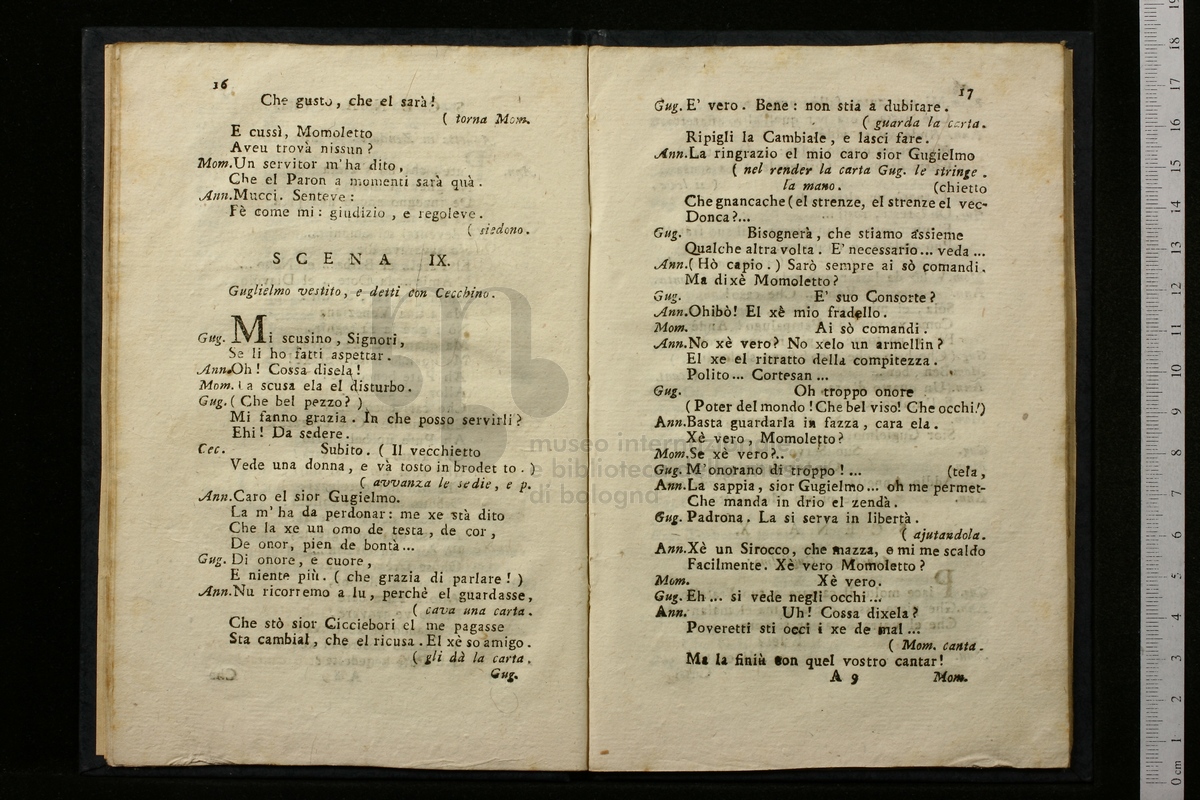 16
Che gusto, che el sarà!
( torna Mom.
E cussì, Momoletto
Aveu trovà nissun?
Mom. Un servitor m'ha dito,
Che el Paron a momenti sarà quà.
Ann. Mucci. Senteve:
Fè come mi: giudizio, e regoleve.
( siedono.
SCENA IX.
Guglielmo vestito, e detti con Cecchino.
Gug. Mi scusino, Signori,
Se li ho fatti aspettar.
Ann. Oh! Cossa disela!
Mom. La scusa ela el disturbo.
Gug. ( Che bel pezzo? )
Mi fanno grazia. In che posso servirli?
Ehi! Da sedere.
Cec. Subito. ( Il vecchietto
Vede una donna, e và tosto in brodetto. )
( avvanza le sedie, e p.
Ann. Caro el sior Gugielmo.
La m'ha da perdonar: me xe stà dito
Che la xe un omo de testa, de cor,
De onor, pien de bontà...
Gug. Di onore, e cuore,
E niente più. ( che grazia di parlare! )
Ann. Nu ricorremo a lu, perchè el guardasse,
( cava una carta.
Che stò sior Cicciebori el me pagasse
Sta cambial, che el ricusa. El xè so amigo.
( gli dà la carta.
Gug.
17
Gug. E' vero. Bene: non stia a dubitare.
( guarda la carta.
Ripigli la Cambiale, e lasci fare.
Ann. La ringrazio el mio caro sior Gugielmo
( nel render la carta Gug. le stringe.
la mano. (chietto
Che gnancache (el strenze, el strenze el vec-
Donca?...
Gug. Bisognerà, che stiamo assieme
Qualche altra volta. E' necessario... veda...
Ann. ( Hò capio. ) Sarò sempre ai sò comandi.
Ma dixè Momoletto?
Gug. E' suo Consorte?
Ann. Ohibò! El xè mio fradello.
Mom. Ai sò comandi.
Ann. No xè vero? No xelo un armellin?
El xe el ritratto della compitezza.
Polito... Cortesan...
Gug. Oh troppo onore
( Poter del mondo! Che bel viso! Che occhi!)
Ann. Basta guardarla in fazza, cara ela.
Xè vero, Momoletto?
Mom. Se xè vero?..
Gug. M'onorano di troppo!... (tela,
Ann. La sappia, sior Gugielmo... oh me permet-
Che manda in drio el zendà.
Gug. Padrona. La si serva in libertà.
( ajutandola.
Ann. Xè un Sirocco, che mazza, e mi me scaldo
Facilmente. Xè vero Momoletto?
Mom. Xè vero.
Gug. Eh... si vede negli occhi...
Ann. Uh! Cossa dixela?
Poveretti sti occi i xe de mal...
( Mom. canta.
Ma la finiù con quel vostro cantar!
A 9 Mom.
museo internazionale
e biblioteca
di bologna
0 cm 1 2 3 4 5 6 7 8 9 10 11 12 13 14 15 16 17 18 19